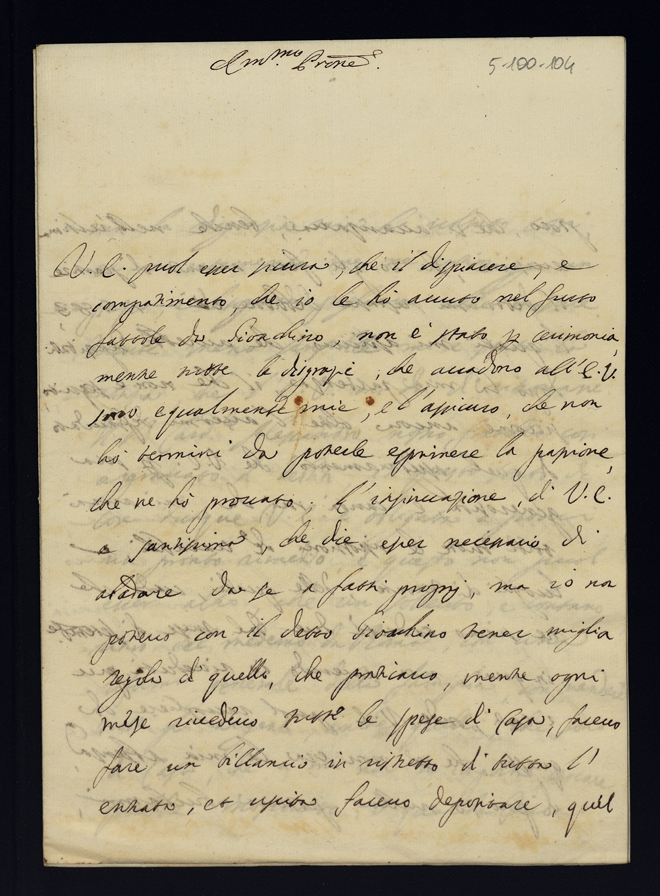 Am.mo Prone. 5-100-104
V. E. puol esser sicura, che il dispiacere, e
compatimento, che io le hò auuto nel furto
fattole da Gioachino, non è stato p cerimonia,
mentre tutte le disgrazie, che accadono all'E. V.
sono equalmente mie, e l'assicuro, che non
hò termini da poterle esprimere la passione,
che ne hò prouato; L'insinuazione, di V. E.
è santissima, che dice esser necessario di
abadare da se a fatti proprij, ma io non
poteuo con il detto Gioachino tener miglia
regola di quella, che praticauo, mentre ogni
mese riuedeuo tutte le spese di Casa, faceuo
fare un billancio in ristretto di tutta l'
entrata, et uscita faceuo depositare, quel